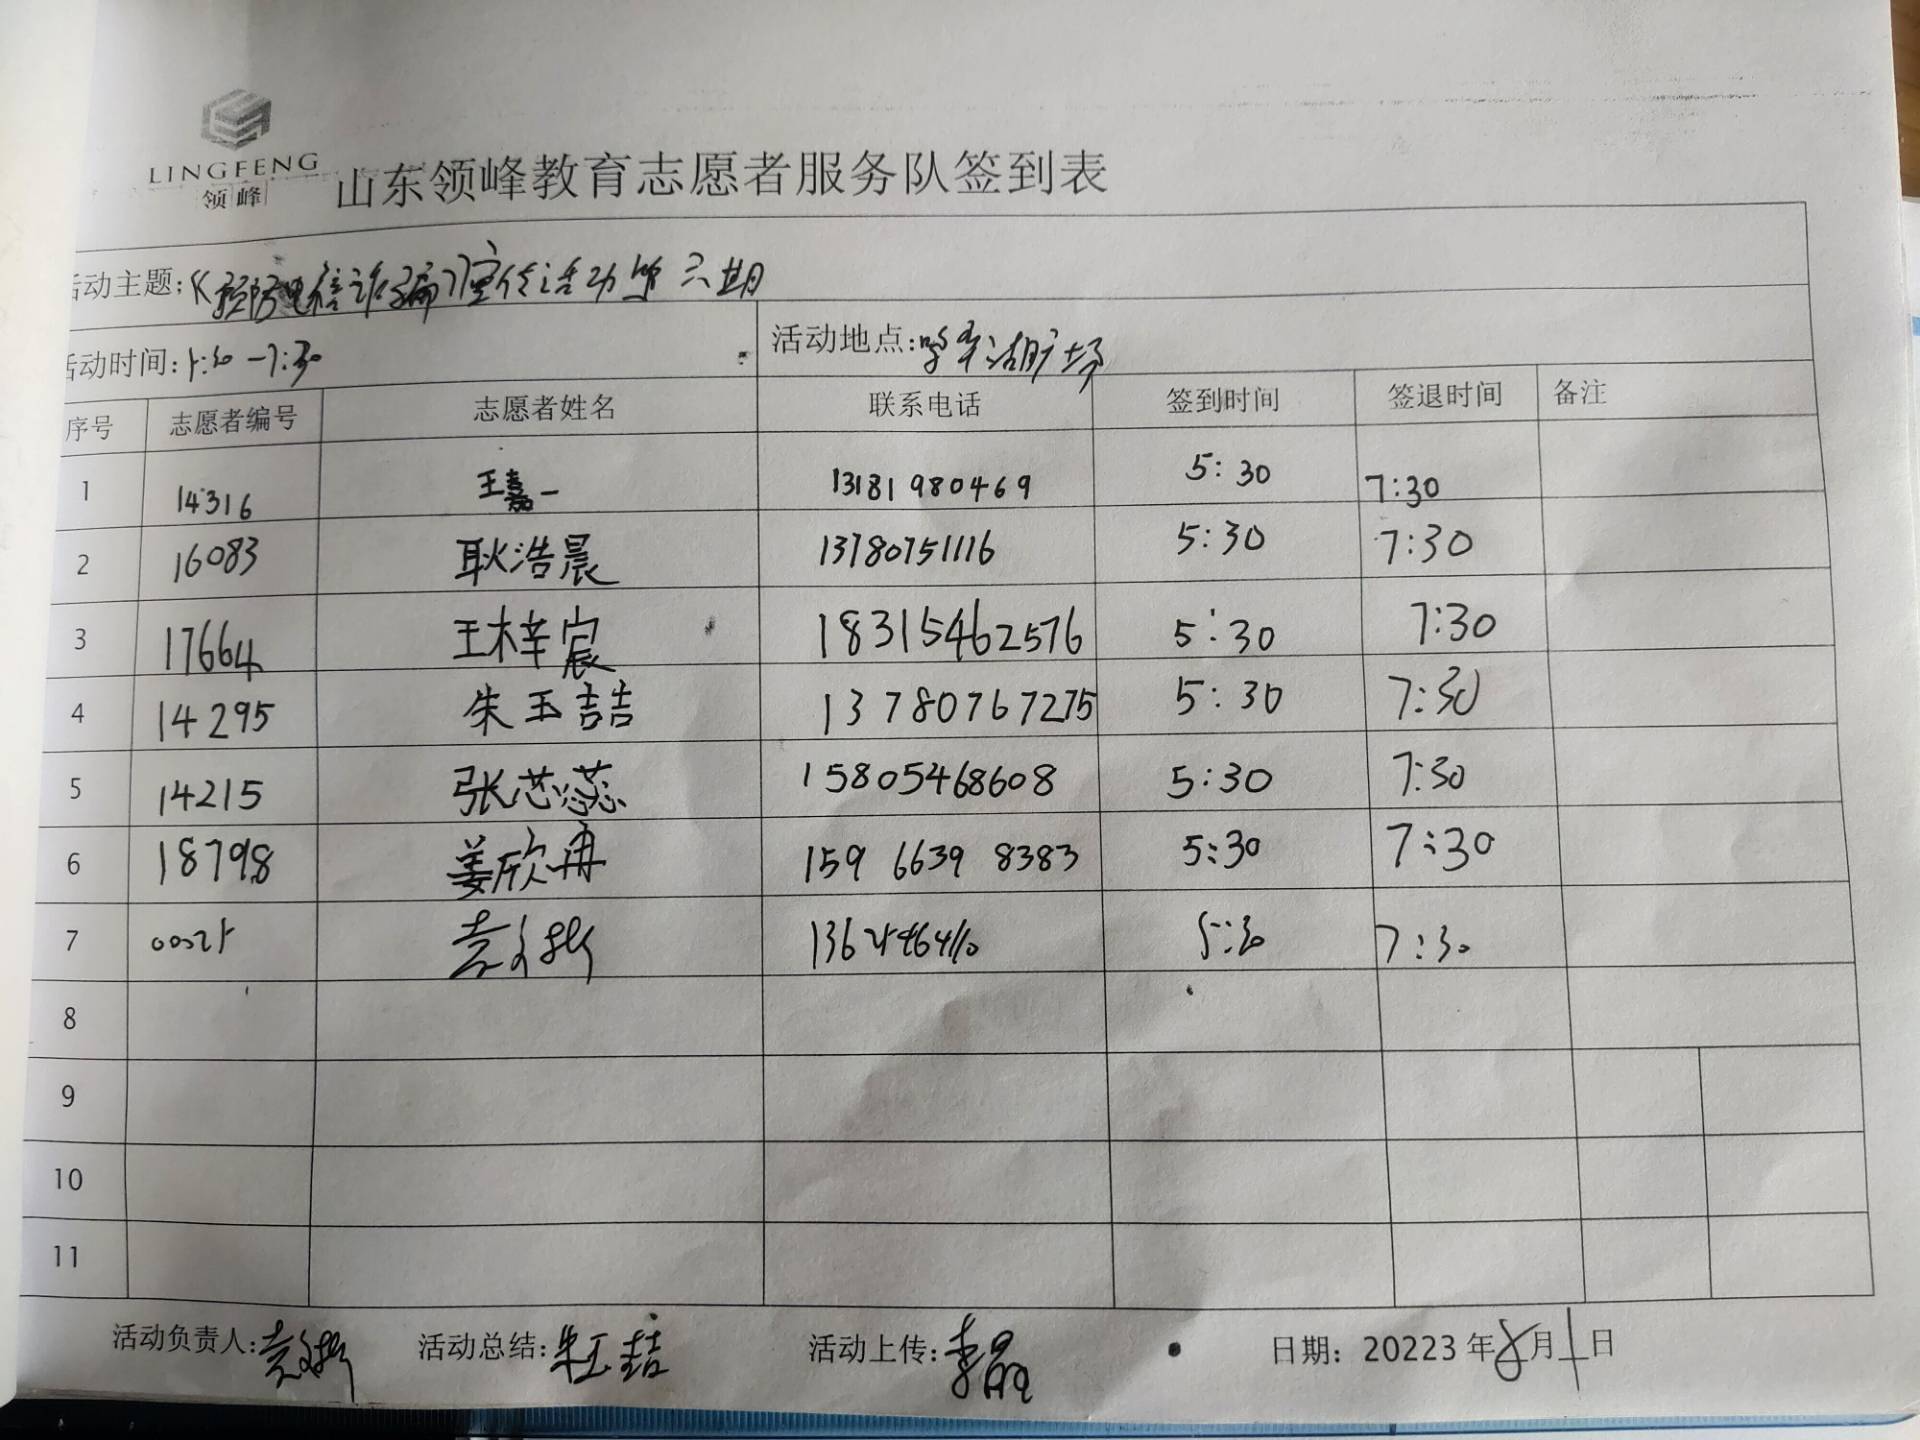 LINGFENG
领峰
山东领峰教育志愿者服务队签到表
活动主题: 预防电信诈骗 宣传活动第六期
活动时间: 5:30-7:30 活动地点: 广场
序号 志愿者编号 志愿者姓名 联系电话 签到时间 签退时间 备注
1 14316 王嘉一 13181980469 5:30 7:30
2 16083 耿浩晨 13780751116 5:30 7:30
3 17664 王梓宸 18315462576 5:30 7:30
4 14295 朱玉喆 13780767275 5:30 7:30
5 14215 张芯蕊 15805468608 5:30 7:30
6 18798 姜欣冉 159 6639 8383 5:30 7:30
7 0025 5:30 7:30
8
9
10
11
活动负责人: 活动总结: 朱玉喆 活动上传: 李晶 日期: 20223年8月1日